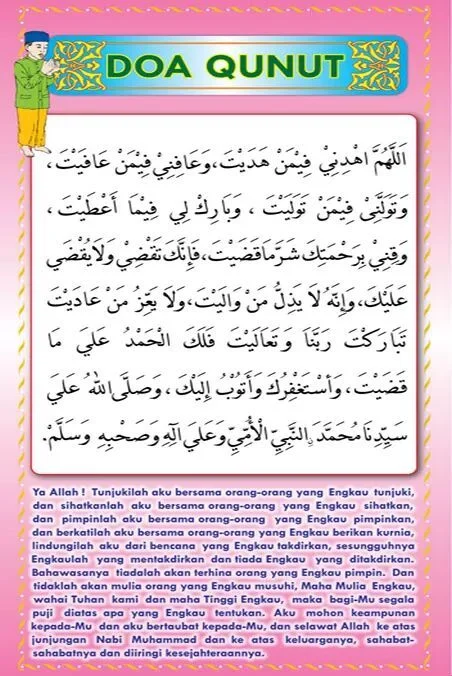 DOA QUNUT
اَللّٰهُمَّ اهْدِنِيْ فِيْمَنْ هَدَيْتَ، وَعَافِنِيْ فِيْمَنْ عَافَيْتَ،
وَتَوَلَّنِيْ فِيْمَنْ تَوَلَّيْتَ، وَبَارِكْ لِي فِيْمَا أَعْطَيْتَ،
وَقِنِيْ بِرَحْمَتِكَ شَرَّمَا قَضَيْتَ، فَإِنَّكَ تَقْضِيْ وَلَايُقْضَي
عَلَيْكَ، وَإِنَّهُ لَا يَذِلُّ مَنْ وَالَيْتَ، وَلَا يَعِزُّ مَنْ عَادَيْتَ
تَبَارَكْتَ رَبَّنَا وَتَعَالَيْتَ فَلَكَ الْحَمْدُ عَلَي مَا
قَضَيْتَ، وَأَسْتَغْفِرُكَ وَأَتُوْبُ إِلَيْكَ، وَصَلَّى اللهُ عَلَي
سَيِّدِنَا مُحَمَّدٍ، النَّبِيِّ الْأُمِّيِّ وَعَلَي آلِهِ وَصَحْبِهِ وَسَلَّمْ.
Ya Allah ! Tunjukilah aku bersama orang-orang yang Engkau tunjuki,
dan sihatkanlah aku bersama orang-orang yang Engkau sihatkan,
dan pimpinlah aku bersama orang-orang yang Engkau pimpinkan,
dan berkatilah aku bersama orang-orang yang Engkau berikan kurnia,
lindungilah aku dari bencana yang Engkau takdirkan, sesungguhnya
Engkaulah yang mentakdirkan dan tiada Engkau yang ditakdirkan.
Bahawasanya tiadalah akan terhina orang yang Engkau pimpin. Dan
tidaklah akan mulia orang yang Engkau musuhi, Maha Mulia Engkau,
wahai Tuhan kami dan maha Tinggi Engkau, maka bagi-Mu segala
puji diatas apa yang Engkau tentukan. Aku mohon keampunan
kepada-Mu dan aku bertaubat kepada-Mu, dan selawat Allah ke atas
junjungan Nabi Muhammad dan ke atas keluarganya, sahabat-
sahabatnya dan diiringi kesejahteraannya.